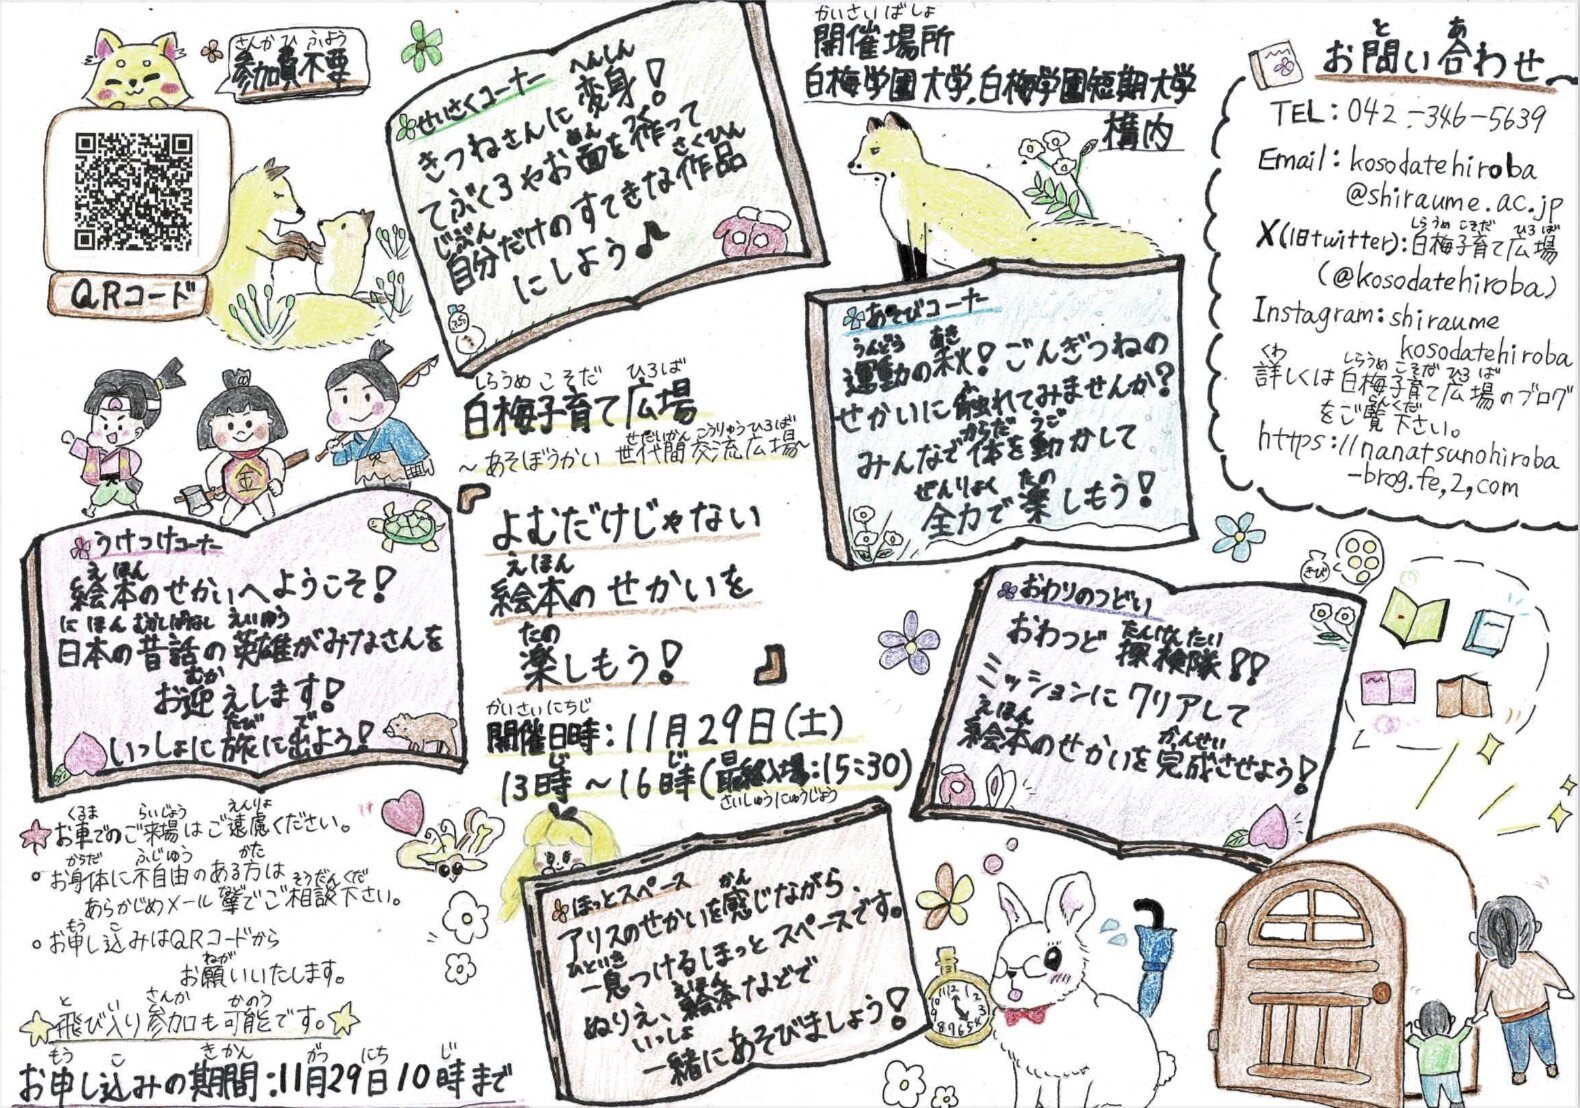 参加費不要
QRコード
せいさくコーナー
きつねさんに変身！
てぶくろやお面を作って
自分だけのすてきな作品
にしよう♪
開催場所
白梅学園大学,白梅学園短期大学
構内
お問い合わせ
TEL：042-346-5639
Email：kosodatehiroba
@shiraume.ac.jp
X(旧twitter)：白梅子育て広場
(@kosodatehiroba)
Instagram：shiraume
kosodatehiroba
詳しくは白梅子育て広場のブログ
をご覧下さい。
https://nanatsunohiroba
-brog.fc,2,com
あそびコーナー
運動の秋！ごんぎつねの
せかいに触れてみませんか？
みんなで体を動かして
全力で楽しもう！
白梅子育て広場
～あそぼうかい 世代間交流広場～
よむだけじゃない
絵本のせかいを
楽しもう！
開催日時：11月29日(土)
13時～16時(最終入場：15:30)
うけつけコーナー
絵本のせかいへようこそ！
日本の昔話の英雄がみなさんを
お迎えします！
いっしょに旅に出よう！
金
おわりのつどい
おわつど 探検隊！！
ミッションにクリアして
絵本のせかいを完成させよう！
きび
☆お車でのご来場はご遠慮ください。
○お身体に不自由のある方は
あらかじめメール等でご相談下さい。
○お申し込みはQRコードから
お願いいたします。
☆飛び入り参加も可能です。☆
お申し込みの期間：11月29日10時まで
ほっとスペース
アリスのせかいを感じながら、
一息つけるほっとスペースです。
ぬりえ、絵本などで
一緒にあそびましょう！